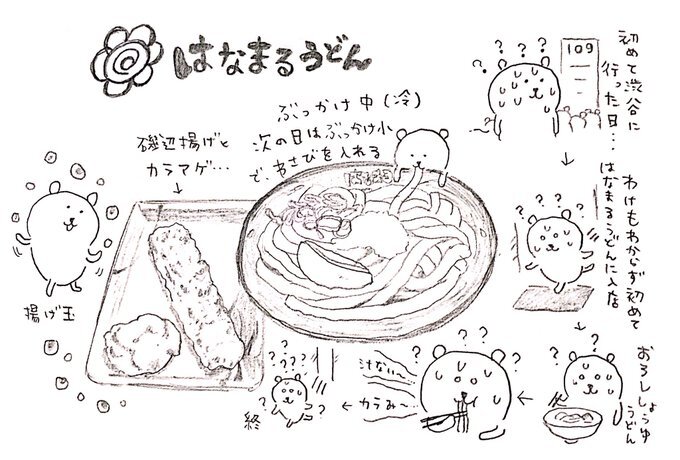 はなまるうどん
ぶっかけ中(冷)
次の日はぶっかけ小
で、わさびを入れる
磯辺揚げと
カラマゲ…
揚げ玉
初めて渋谷に
行った日…
109
わけもわからず初めて
はなまるうどんに入店
おろししょうゆ
うどん
汁ない〜
カラみ〜…
終
? ? ?
? ? ? ?
? ? ?
? ? ? ?
? ? ? ? ? ?